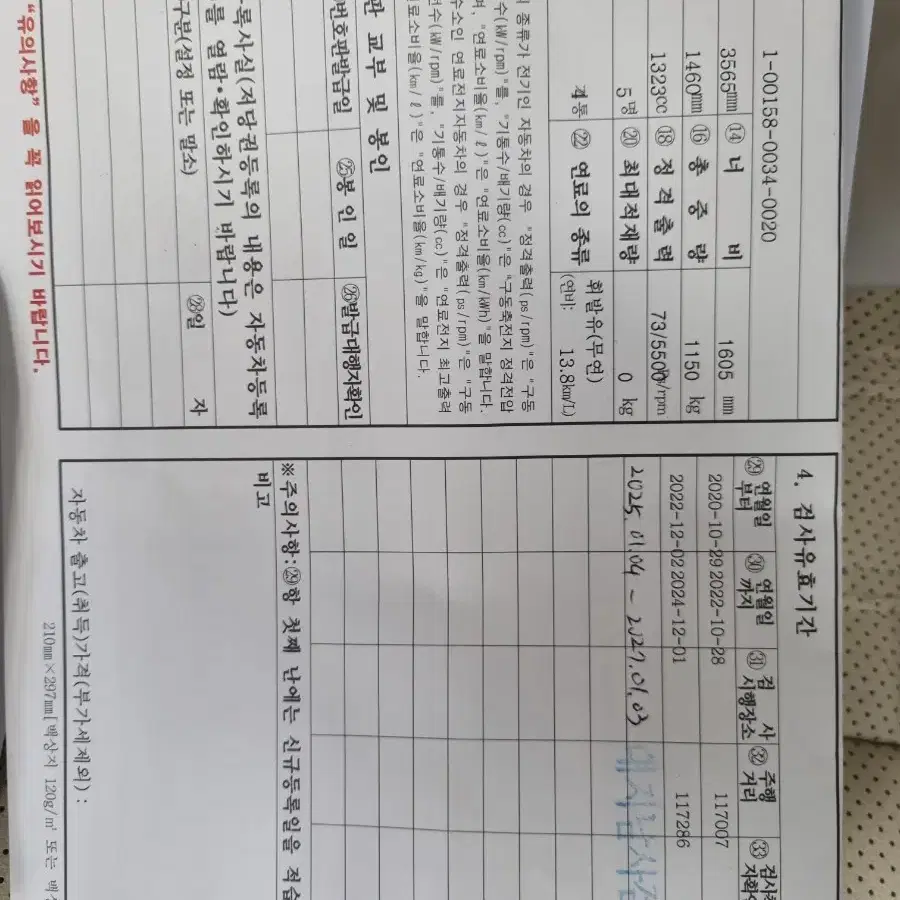 1-00158-0034-0020
3565mm ⑭ 너 비 1605 mm
1460mm ⑯ 총 중 량 1150 kg
1323cc ⑱ 정 격 출 력 73/5500ps/rpm
5 명 ⑳ 최 대 적 재 량 0 kg
4기통 ㉒ 연료의 종류 휘발유(무연)
(연비: 13.8km/L)
종류가 전기인 자동차의 경우 "정격출력(ps/rpm)"은 "구동
수(㎾/rpm)"를, "기통수/배기량(cc)"은 "구동축전지 정격전압
며, "연료소비율(km/ℓ)"은 "연료소비율(km/kWh)"을 말합니다.
수소인 연료전지자동차의 경우 "정격출력(ps/rpm)"은 "구동
전수(㎾/rpm)"를, "기통수/배기량(cc)"은 "연료전지 최고출력
료소비율(km/ℓ)"은 "연료소비율(km/kg)"을 말합니다.
판 교부 및 봉인
번호판발급일 ㉕봉 인 일 ㉖발급대행자확인
록사실(저당권등록의 내용은 자동차등록
를 열람·확인하시기 바랍니다)
구분(설정 또는 말소) ㉘일 자
"유의사항" 을 꼭 읽어보시기 바랍니다.
4. 검사유효기간
㉙ 연월일 부터 ㉚ 연월일 까지 ㉛ 검 사 시행장소 ㉜ 주행 거리 ㉝
2020-10-29 2022-10-28 117007
2022-12-02 2024-12-01 117286
2025.01.04 ~ 2027.01.03
※주의사항:㉙항 첫째 난에는 신규등록일을 적습
비고
자동차 출고(취득)가격(부가세제외) :
210㎜×297㎜[백상지 120g/㎡ 또는